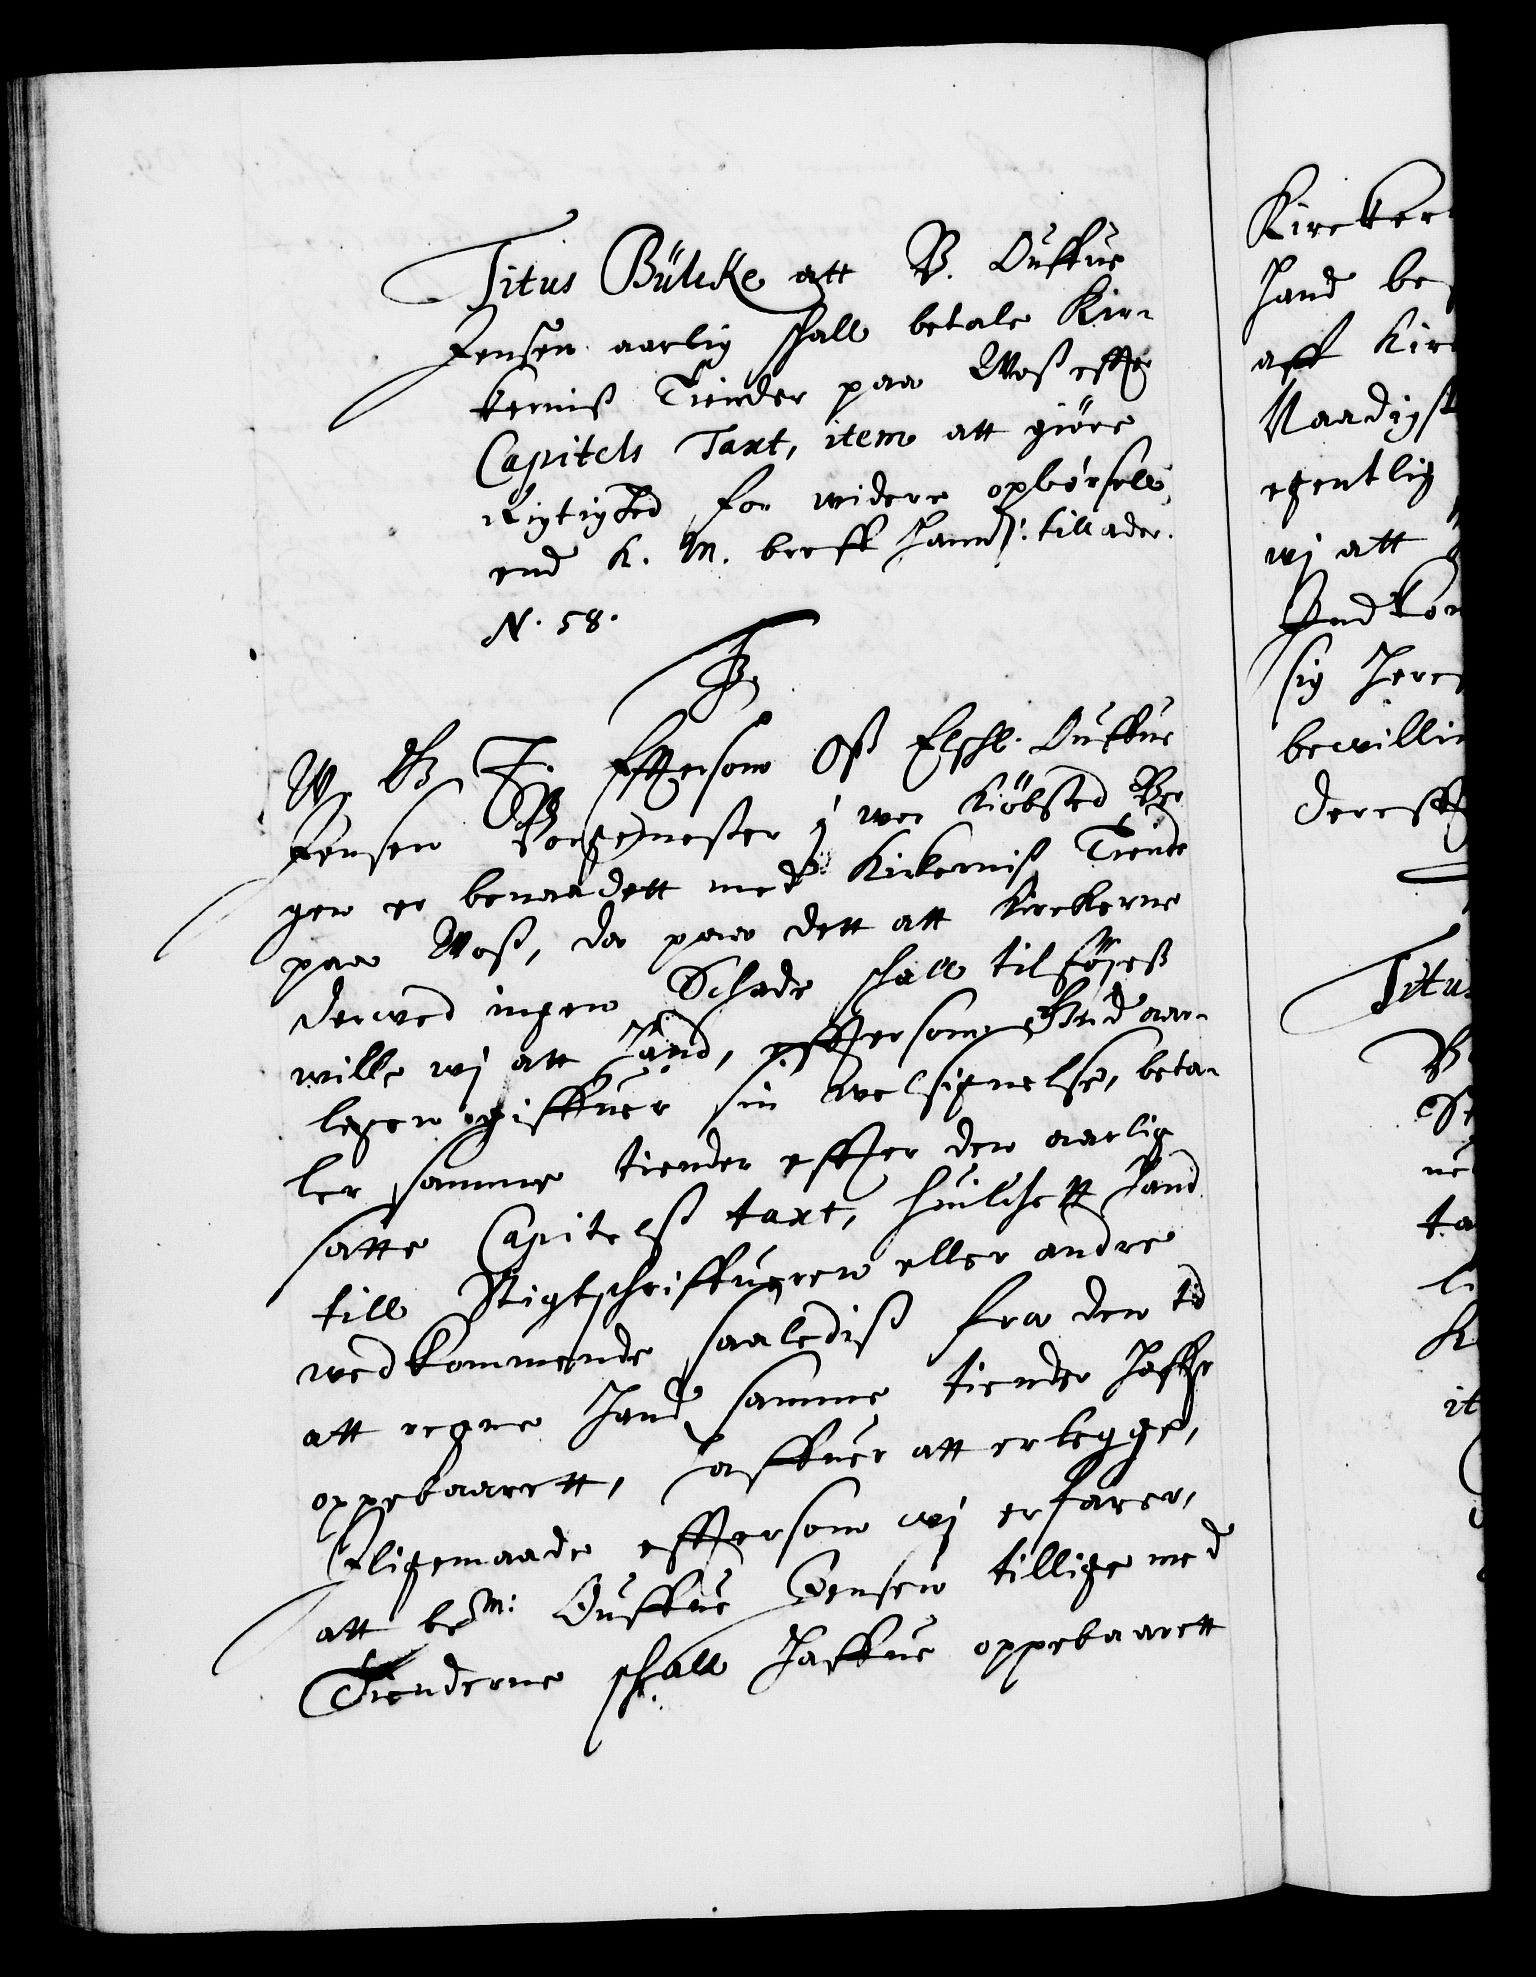 Titus Bülcke att B. Ouffue
Jensen aarlig shall betale Kir-
kerniß Tiender paa Woß effter
Capitels Taxt, item att giöre
Rigtighed for widere opbörsell,
end K. M. breff hannd: tillader.
N. 58.
F3.
W. G. T. Efftersom Oß Elschl. Ouffue
Jensen Borgemester i wor Kiöbsted Ber
gen er benaadett med Kirkerniß Tiende
paa Woß, da paa dett att Kirckerne
derved ingen Schade shall tilföjeß
wille wj att hand, efftersom Gud aar-
ligen giffuer sin welsignelse, beta-
ler samme tiender effter den aarlig
satte Capitelß taxt, huilchett hand
till Stigtschriffueren eller andre
wedkommende saalediß fra den tid
att regne hand samme tiender haffr
oppebaarett, haffuer att erlegge,
Ligemaade efftersom wj erfarer,
att bem: Ouffue Jensen tillige med
Tienderne shall haffue oppebaarett
Kircker
hand be
aff Kir
Naadigst
egentlig
wj att
Indkom
sig her
bewillin
dereff
Titus
B
St
ne
ta
li
K
it